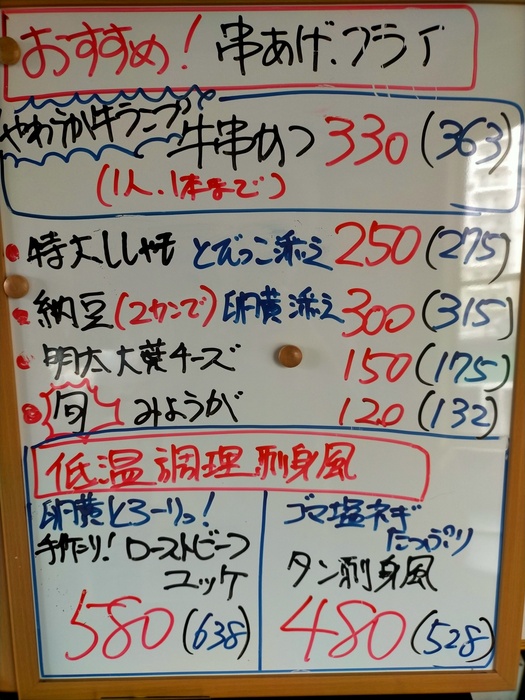 おすすめ! 串あげ、フライ
やわらか牛ランプの
牛串かつ 330(363)
(1人、1本まで)
特大ししゃも とびっこ添え 250(275)
納豆(2カンで)卵黄添え 300(315)
明太大葉チーズ 150(175)
旬 みょうが 120(132)
低温調理 刺身風
卵黄とろーりっ!
手作り! ローストビーフ
ユッケ
580(638)
ゴマ塩ネギ
たっぷり
タン刺身風
480(528)